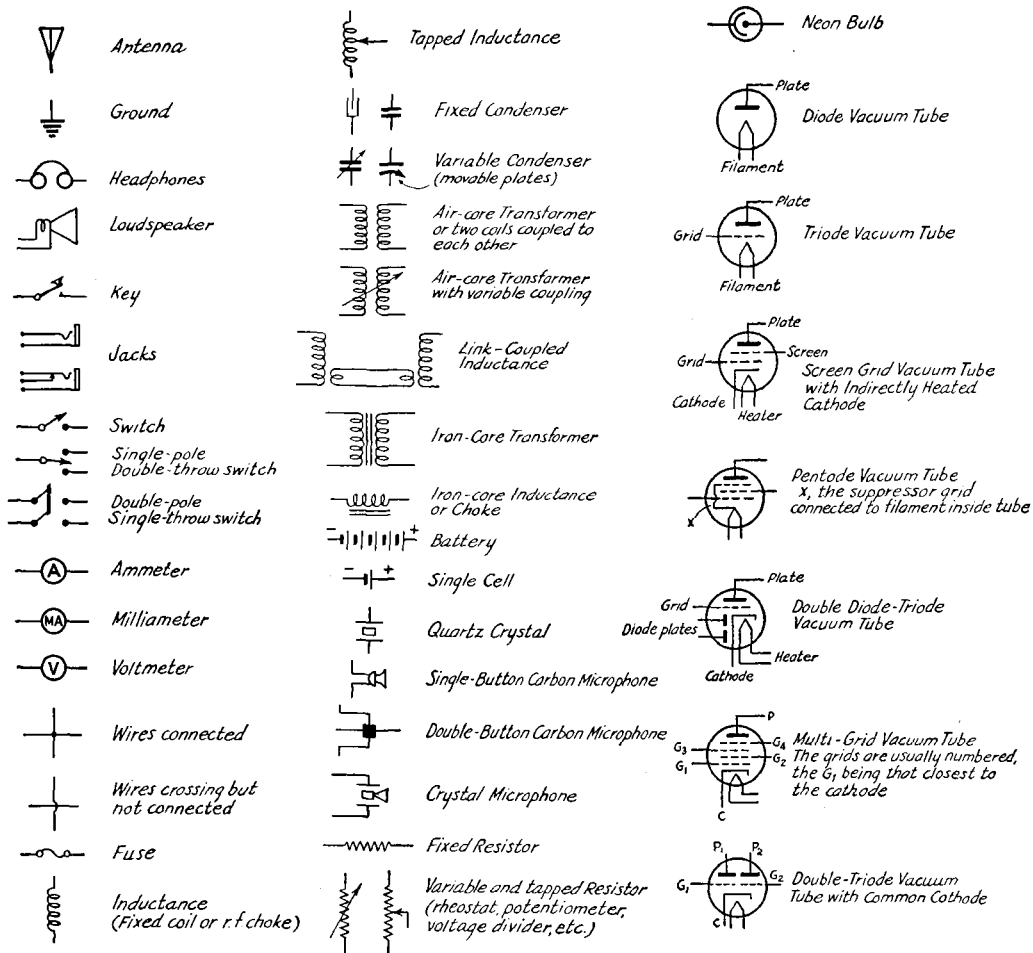 Antenna
Ground
Headphones
Loudspeaker
Key
Jacks
Switch
Single-pole
Double-throw switch
Double-pole
Single-throw switch
A
Ammeter
MA
Milliameter
V
Voltmeter
Wires connected
Wires crossing but
not connected
Fuse
Inductance
(Fixed coil or r.f choke)
Tapped Inductance
Fixed Condenser
Variable Condenser
(movable plates)
Air-core Transformer
or two coils coupled to
each other
Air-core Transformer
with variable coupling
Link-Coupled
Inductance
Iron-Core Transformer
Iron-core Inductance
or Choke
- +
Battery
- +
Single Cell
Quartz Crystal
Single-Button Carbon Microphone
Double-Button Carbon Microphone
Crystal Microphone
Fixed Resistor
Variable and tapped Resistor
(rheostat, potentiometer,
voltage divider, etc.)
Neon Bulb
Plate
Diode Vacuum Tube
Filament
Plate
Grid
Triode Vacuum Tube
Filament
Plate
Screen
Grid
Screen Grid Vacuum Tube
with Indirectly Heated
Cathode
Cathode
Heater
Pentode Vacuum Tube
X, the suppressor grid
connected to filament inside tube
X
Plate
Grid
Double Diode-Triode
Vacuum Tube
Diode plates
Heater
Cathode
P
G4
G3
G2
G1
C
Multi-Grid Vacuum Tube
The grids are usually numbered,
the G1 being that closest to
the cathode
P1 P2
G1 G2
C
Double-Triode Vacuum
Tube with Common Cathode